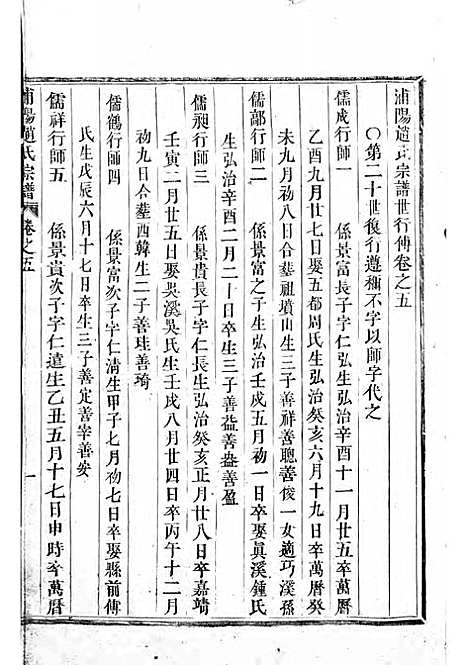 浦陽趙氏宗譜世行傳卷之五
○第二十世復行遵稱不字以師字代之
儒成行師一　係景富長子字仁弘生弘治辛酉十一月廿五卒萬曆
乙酉九月初七日娶五都周氏生弘治癸亥六月十九日卒萬曆癸
未九月初八日合葬祖墳山生三子善祥善聰善俊一女適巧溪孫
儒部行師二　係景富之子生弘治壬戌五月初一日卒娶眞溪鍾氏
生弘治辛酉二月二十日卒生三子善益善盎善盈
儒昶行師三　係景貴長子字仁長生弘治癸亥正月廿八日卒嘉靖
壬寅二月廿五日娶吳溪吳氏生壬戌八月廿四日卒丙午十二月
初九日合葬西韓生二子善珪善琦
儒鶴行師四　係景富次子字仁淸生甲子七月初七日卒娶縣前傅
氏生戊辰六月十七日卒生三子善定善宰善安
儒祥行師五　係景貴次子字仁遣生乙丑五月十七日申時卒萬曆
浦陽趙氏宗譜　卷之五　一